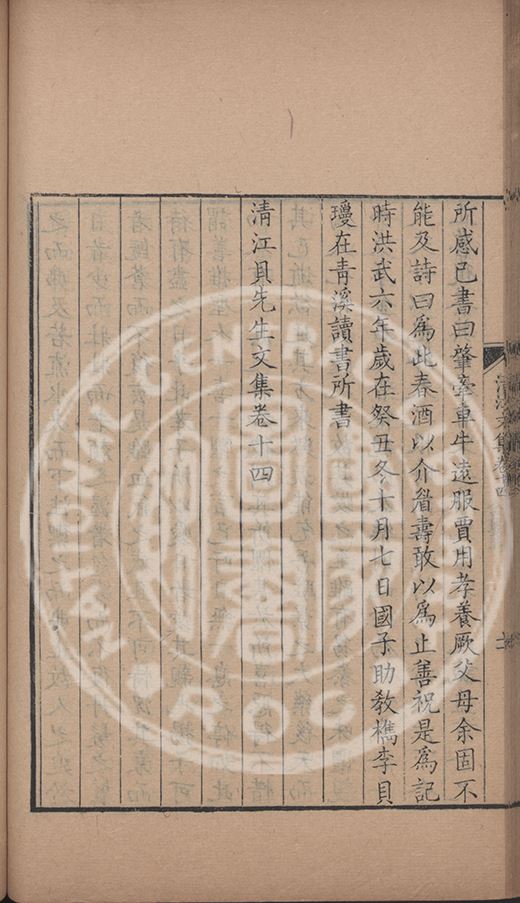 所感已書曰肇牽車牛遠服賈用孝養厥父母余固不
能及詩曰爲此春酒以介眉壽敢以爲止善祝是爲記
時洪武六年歲在癸丑冬十月七日國子助敎檇李貝
瓊在青溪讀書所書
清江貝先生文集卷十四
清江文集卷十四